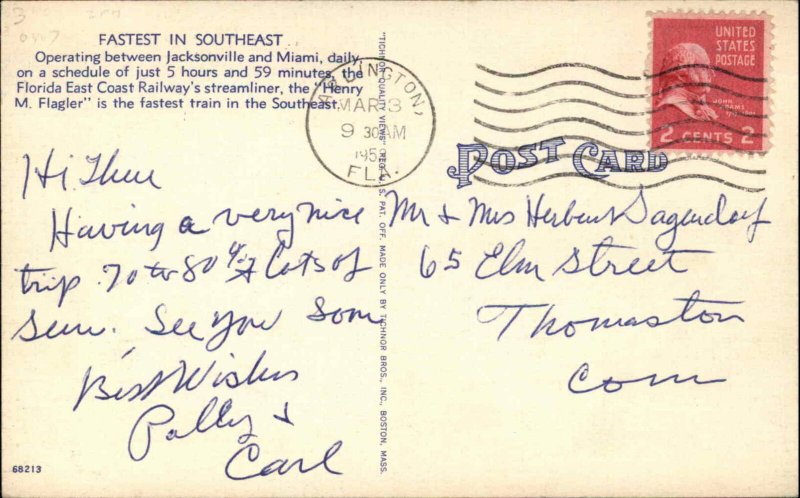 FASTEST IN SOUTHEAST
Operating between Jacksonville and Miami, daily
on a schedule of just 5 hours and 59 minutes, the
Florida East Coast Railway's streamliner, the "Henry
M. Flagler" is the fastest train in the Southeast.
Hi There
Having a very nice
trip. 70 to 80° & lots of
sun. See You Soon
Best Wishes
Polly &
Carl
68213
"TICHNOR QUALITY VIEWS" REG. U. S. PAT. OFF. MADE ONLY BY TICHNOR BROS., INC., BOSTON, MASS.
ARLINGTON,
MAR 3
9 30 AM
FLA.
UNITED
STATES
POSTAGE
JOHN
ADAMS
2 CENTS 2
POST CARD
Mr & Mrs Herbert Sagendorf
65 Elm Street
Thomaston
Conn